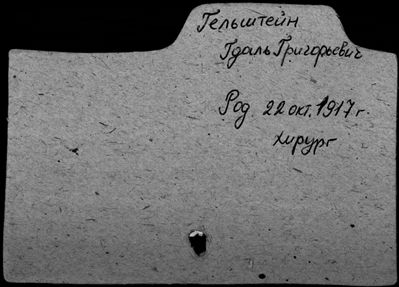 Гельштейн
Гдаль Григорьевич
Род. 22 окт. 1917 г.
хирург